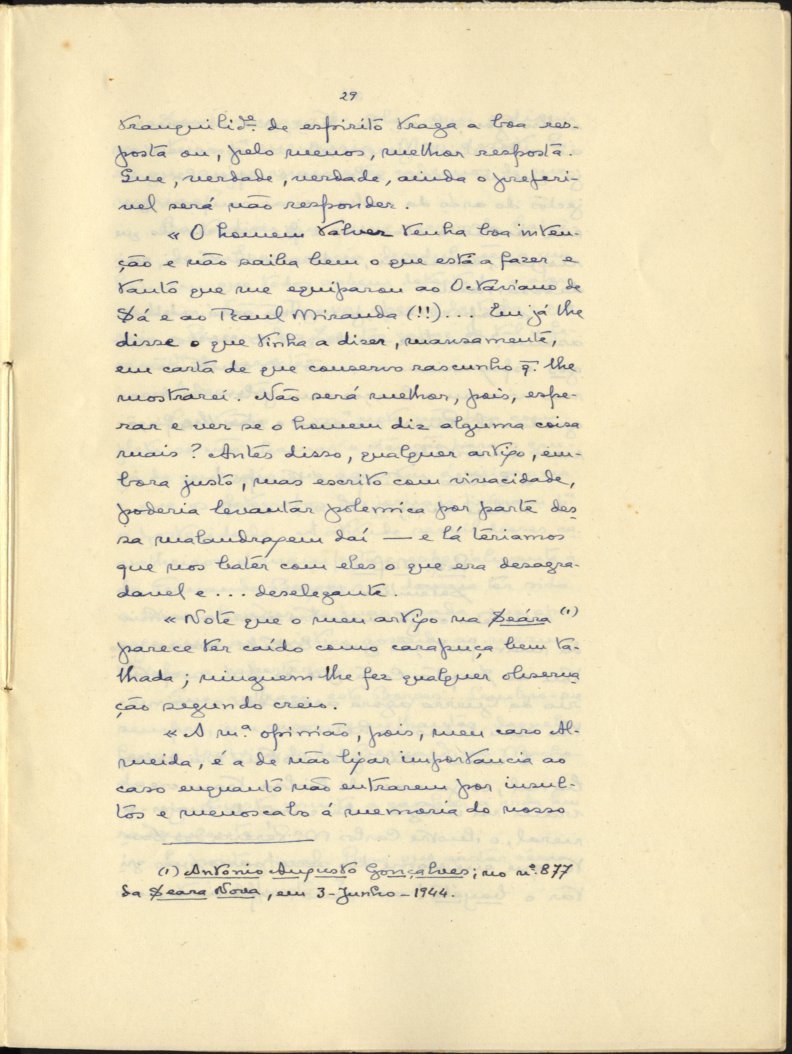 29
tranquilid.e de espirito traga a boa res-
posta ou, pelo menos, melhor resposta.
Que, verdade, verdade, ainda o preferi-
vel será não responder.
« O homem talvez tenha boa inten-
ção e não saiba bem o que está a fazer e
tanto que me equiparou ao Octaviano de
Sá e ao Raul Miranda (!!)... Eu já lhe
disse o que tinha a dizer, mansamente,
em carta de que conservo rascunho q. lhe
mostrarei. Não será melhor, pois, espe-
rar e ver se o homem diz alguma coisa
mais? Antes disso, qualquer artigo, em-
bora justo, mas escrito com vivacidade,
poderia levantar polemica por parte des-
sa malandragem daí — e lá teriamos
que nos bater com eles o que era desagra-
davel e ... deselegante.
« Note que o meu artigo na Seára (1)
parece ter caído como carapuça bem ta-
lhada; ninguem lhe fez qualquer observa-
ção segundo creio.
« A m.a opinião, pois, meu caro Al-
meida, é a de não ligar importancia ao
caso enquanto não entrarem por insul-
tos e menoscabo á memoria do nosso
(1) Antonio Augusto Gonçalves; no n.º 877
da Seara Nova, em 3-Junho-1944.